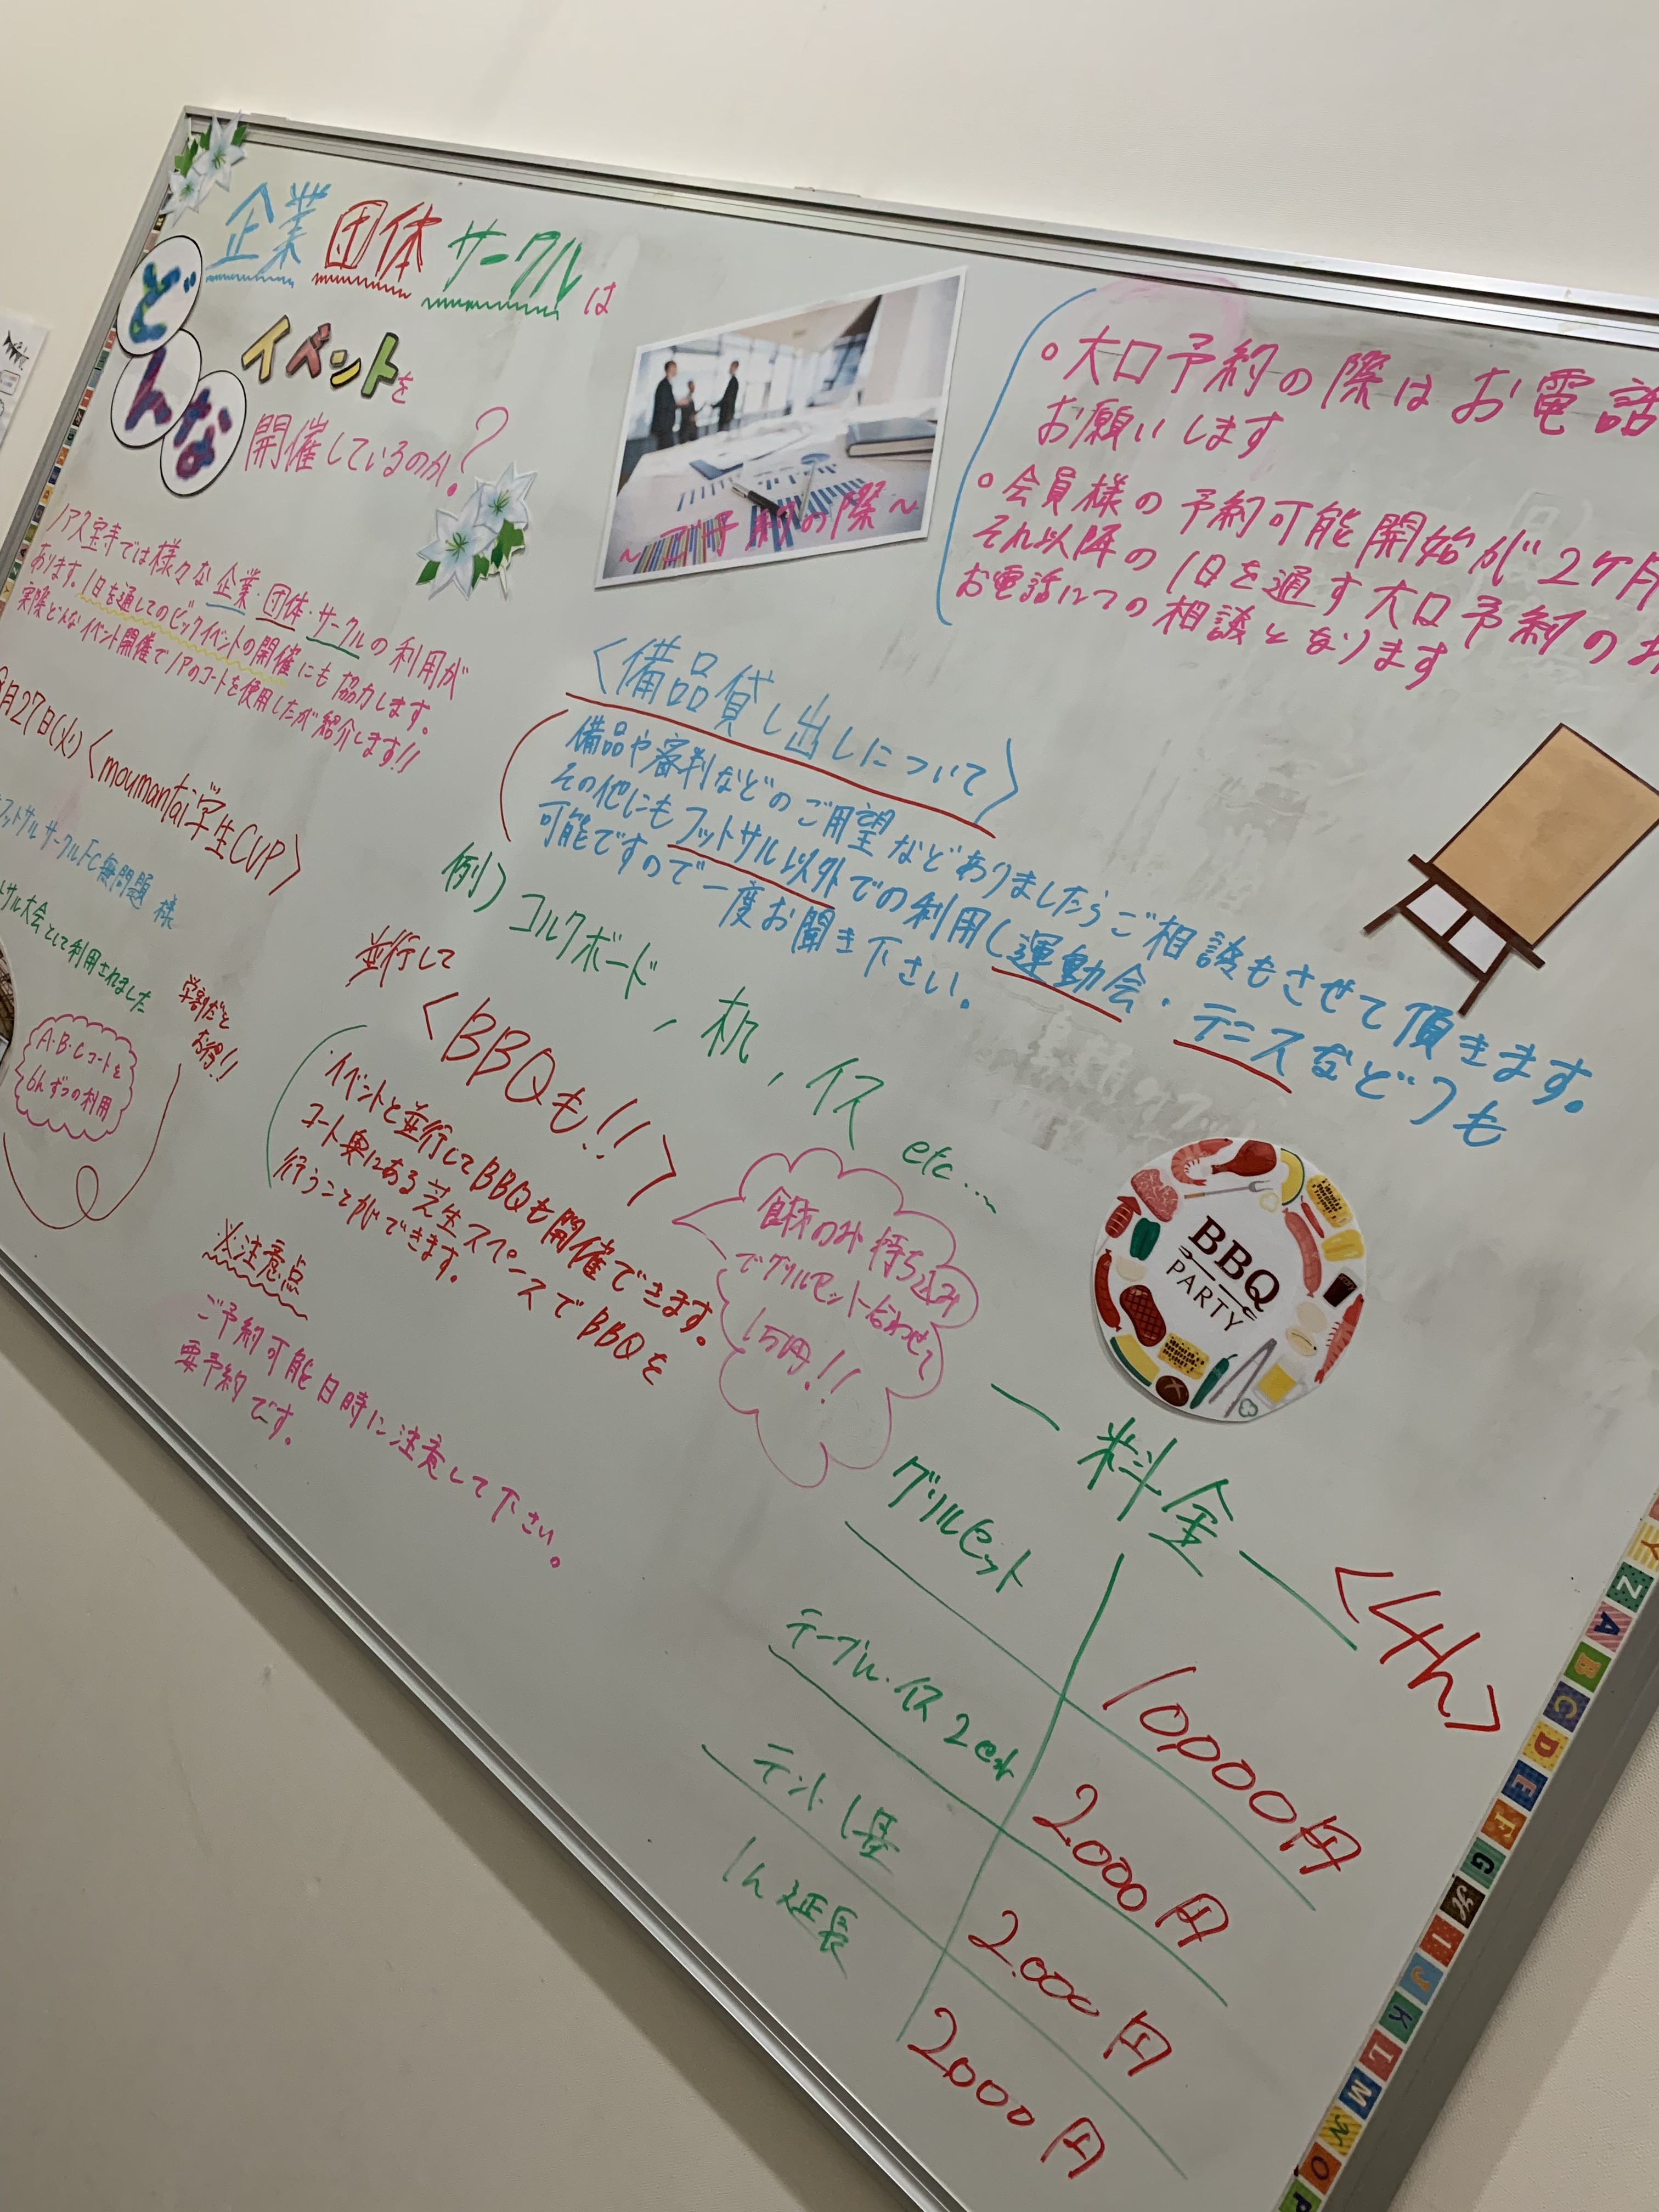 企業 団体 サークルは
どんな
イベントを
開催しているのか?
ノア久宝寺では様々な企業・団体・サークルの利用が
あります。1日を通してのビックイベントの開催にも協力します。
実際どんなイベント開催でノアのコートを使用したか紹介します!!
月27日(火)〈moumantai学生CUP〉
フットサルサークルFC無問題 様
サル大会として利用されました
学割だと
お得!!
A・B・Cコートを
6hずつの利用
~ご予約の際~
○大口予約の際はお電話
お願いします
○会員様の予約可能開始が2ケ月
それ以降の1日を通す大口予約の
お電話にての相談となります
〈備品貸し出しについて〉
備品や審判などのご用望などありましたらご相談もさせて頂きます。
その他にもフットサル以外での利用し運動会・テニスなどつも
可能ですので一度お聞き下さい。
例) コルクボード, 机, イス etc…
並行して
〈BBQも!!〉
・イベントと並行してBBQも開催できます。
コート奥にある芝生スペースでBBQを
行うことができます。
食材のみ持ち込み
でグリルセット合わせて
1万円!!
※注意点
ご予約可能日時に注意して下さい。
要予約です。
BBQ
PARTY
ー料金ー〈4h〉
グリルセット 10000円
テーブル・イス2set 2000円
テント1基 2000円
1h延長 2000円
Y Z A B C D E F G H I J K L M N O P